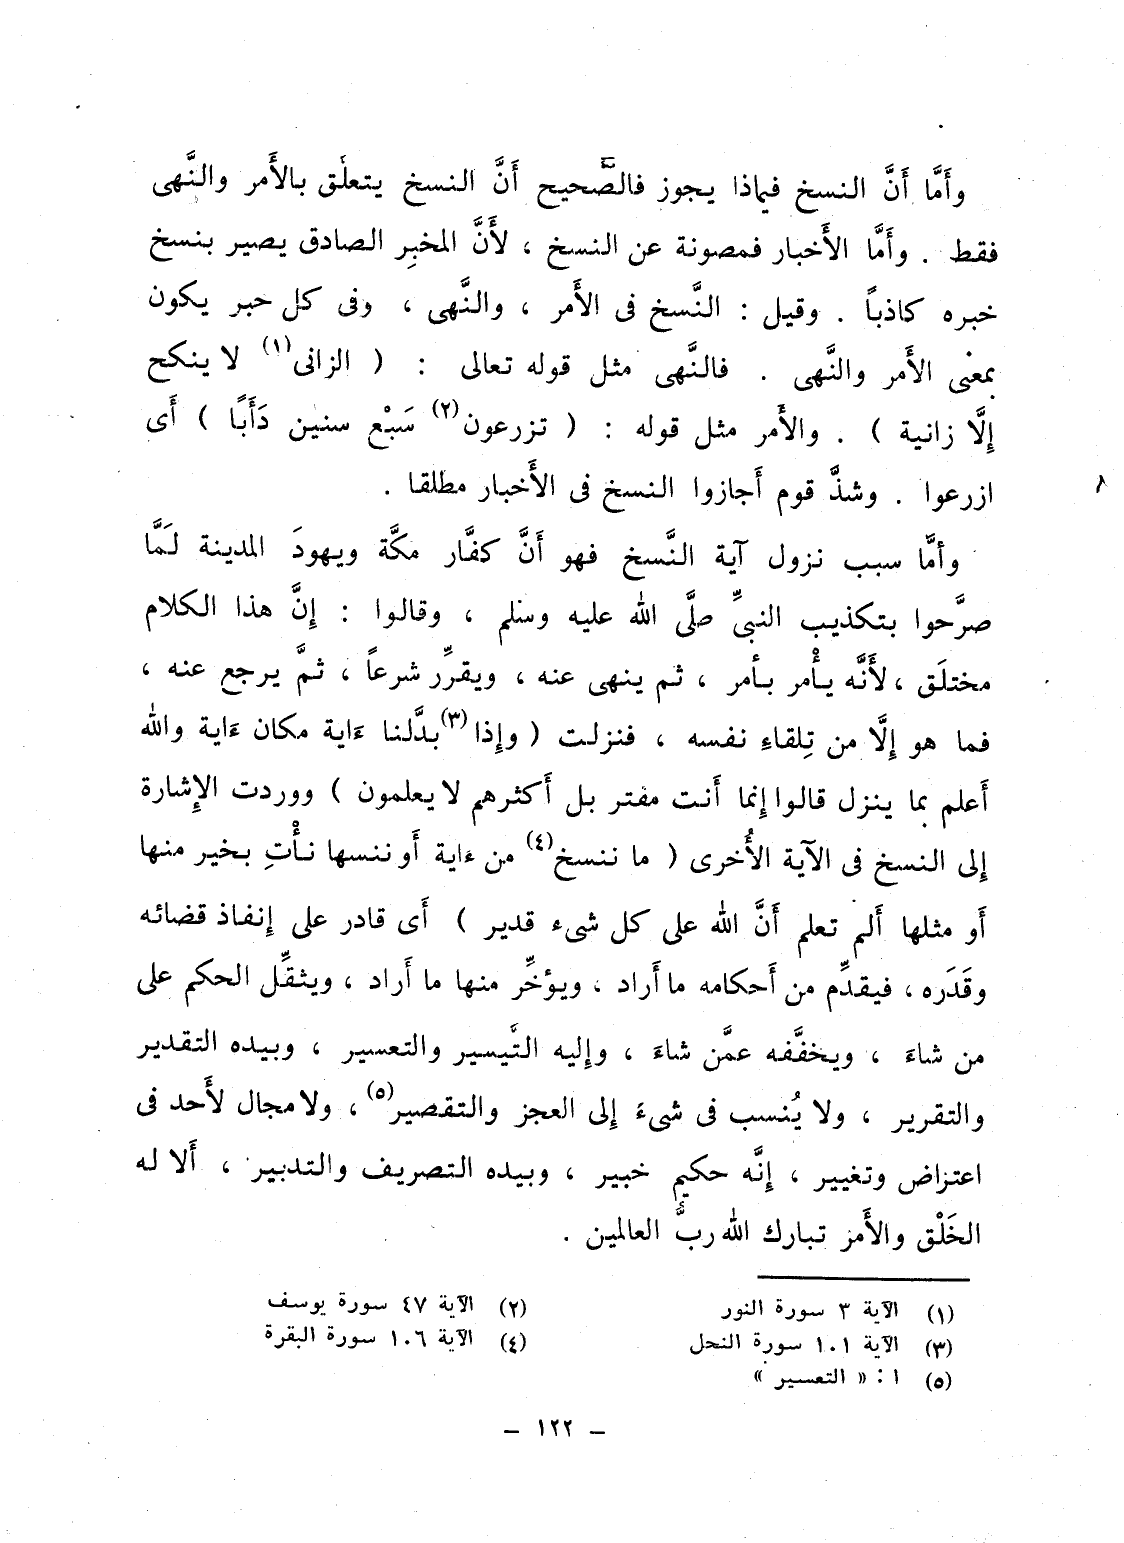 وأَمَّا أَنَّ النسخ فيماذا يجوز فالصَّحيح أَنَّ النسخ يتعلَّق بالأَمر والنَّهى
فقط . وأَمَّا الأَخبار فمصونة عن النسخ ، لأَنَّ المخبِر الصادق يصير بنسخ
خبره كاذباً . وقيل : النَّسخ فى الأَمر ، والنَّهى ، وفى كل خبر يكون
بمعنى الأَمر والنَّهى . فالنَّهى مثل قوله تعالى : ( الزانى(١) لا ينكح
إِلَّا زانية ) . والأَمر مثل قوله : ( تزرعون(٢) سَبْع سنين دَأَبًا ) أَى
ازرعوا . وشذَّ قوم أَجازوا النسخ فى الأَخبار مطلقا .
وأمَّا سبب نزول آية النَّسخ فهو أَنَّ كفَّار مكَّة ويهودَ المدينة لَمَّا
صرَّحوا بتكذيب النبىِّ صلَّى الله عليه وسلم ، وقالوا : إِنَّ هذا الكلام
مختلَق ، لأَنَّه يأْمر بأمر ، ثم ينهى عنه ، ويقرِّر شرعاً ، ثمَّ يرجع عنه ،
فما هو إِلَّا من تِلقاءِ نفسه ، فنزلت ( وإِذا(٣) بدَّلنا ءَاية مكان ءَاية والله
أَعلم بما ينزل قالوا إِنما أَنت مفتر بل أَكثرهم لا يعلمون ) ووردت الإِشارة
إِلى النسخ فى الآية الأُخرى ( ما ننسخ(٤) من ءاية أَو ننسها نأْتِ بخير منها
أَو مثلها أَلم تعلم أَنَّ الله على كل شىء قدير ) أَى قادر على إِنفاذ قضائه
وقَدَره ، فيقدِّم من أَحكامه ما أَراد ، ويؤخِّر منها ما أَراد ، ويثقِّل الحكم على
من شاءَ ، ويخفَّفه عمَّن شاءَ ، وإِليه التَّيسير والتعسير ، وبيده التقدير
والتقرير ، ولا يُنسب فى شىءَ إِلى العجز والتقصير(٥) ، ولا مجال لأَحد فى
اعتراض وتغيير ، إِنَّه حكيم خبير ، وبيده التصريف والتدبير ، أَلا له
الخَلْق والأَمر تبارك الله ربُّ العالمين .
(١) الآية ٣ سورة النور (٢) الآية ٤٧ سورة يوسف
(٣) الآية ١٠١ سورة النحل (٤) الآية ١٠٦ سورة البقرة
(٥) ا : « التعسير »
– ١٢٢ –